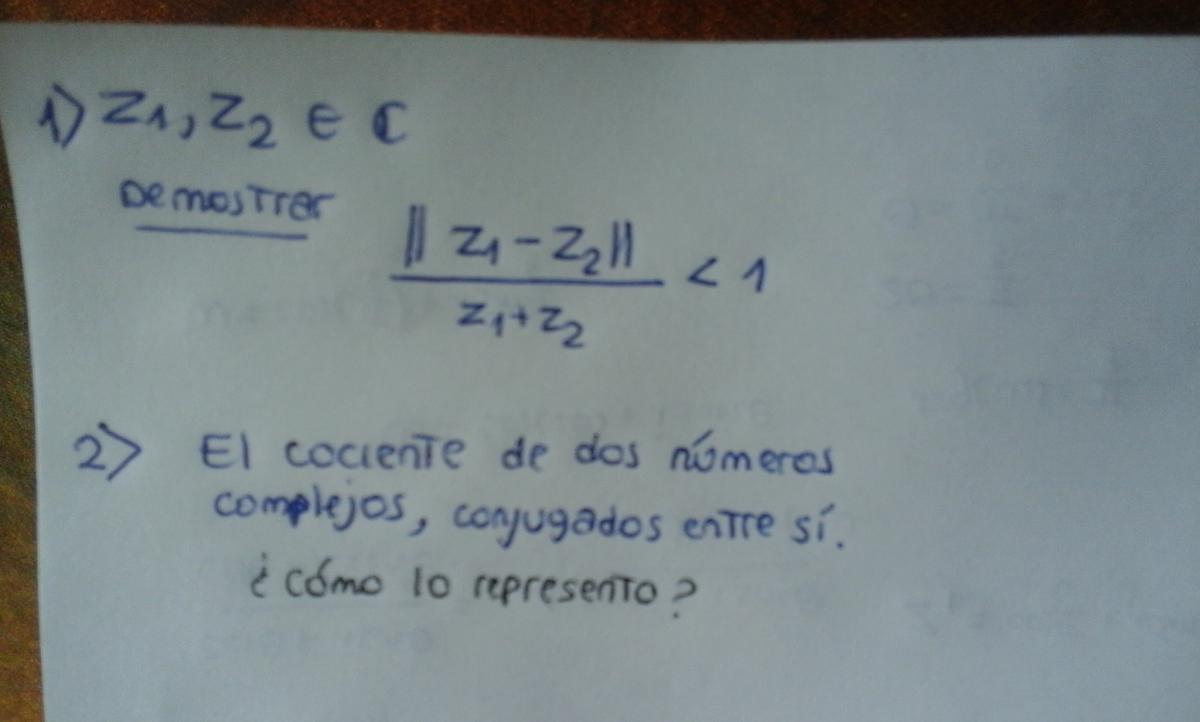 1) Z1, Z2 ∈ ℂ
Demostrar
‖ Z1 - Z2 ‖
Z1 + Z2
< 1
2) El cociente de dos números
complejos, conjugados entre sí.
¿cómo lo represento?